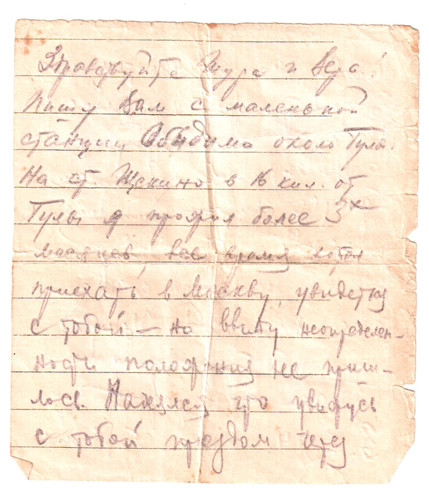 Здравствуйте Шура и Вера!
Пишу Вам с маленькой
станции Обидимо около Тулы.
На ст. Щекино в 16 кил. от
Тулы я прожил более 3х
месяцев, все время хотел
приехать в Москву, увидеться
с тобой – но ввиду неопределен-
ности положения не приш-
лось. Надеялся что увижусь
с тобой проездом через